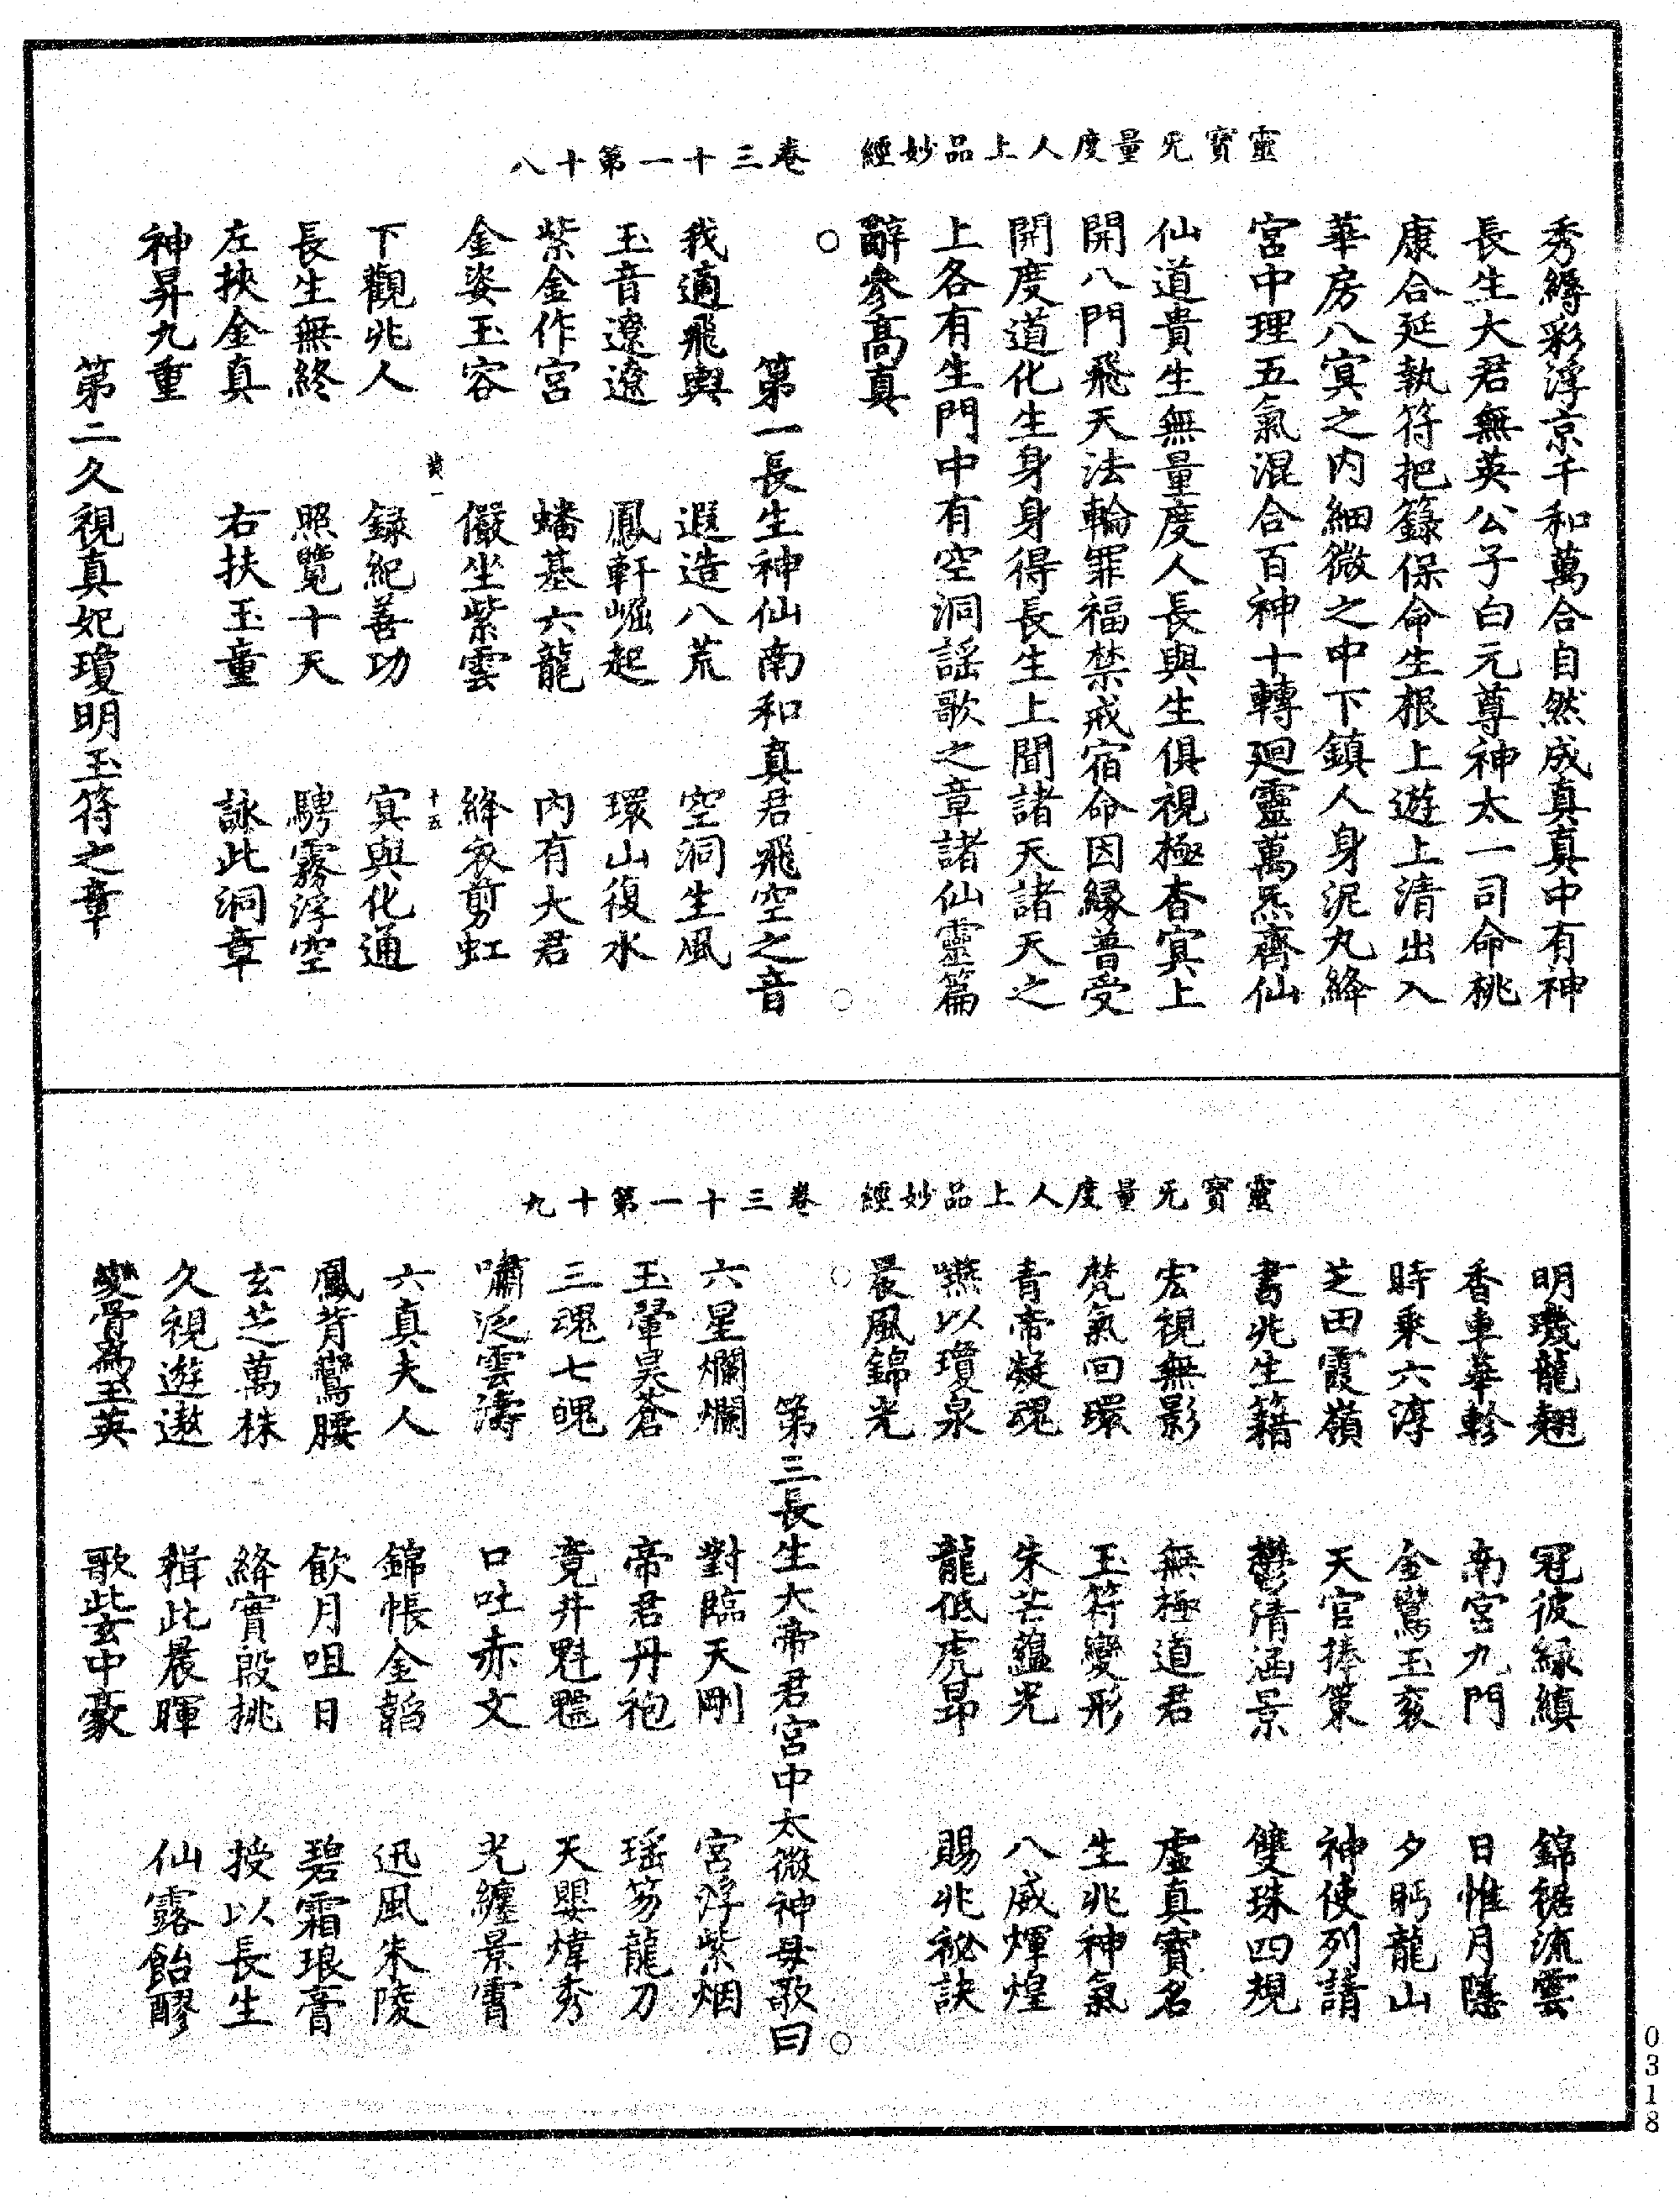 靈寶无量度人上品妙經　卷三十一第十八
秀縟彩浮京千和萬合自然成真真中有神
長生大君無英公子白元尊神太一司命桃
康合延執符把籙保命生根上遊上清出入
華房八㝠之内細微之中下鎮人身泥丸絳
宮中理五氣混合百神十轉廻靈萬炁齊仙
仙道貴生無量度人長與生俱視極杳㝠上
開八門飛天法輪罪福禁戒宿命因緣普受
開度道化生身身得長生上聞諸天諸天之
上各有生門中有空洞謠歌之章諸仙靈篇
辭參高真
○
第一長生神仙南和真君飛空之音
我適飛輿　遐造八荒　空洞生風
玉音遼遼　鳳軒崛起　環山復水
紫金作宮　蟠基六龍　内有大君
金姿玉容　儼坐紫雲　絳衣剪虹
黄一　十五
下觀兆人　録紀善功　㝠與化通
長生無終　照覽十天　騁霧浮空
左挾金真　右扶玉童　詠此洞章
神昇九重
第二久視真妃瓊明玉符之章
靈寶无量度人上品妙經　卷三十一第十九
明璣龍翹　冠彼綠縝　錦裾流雲
香車華軫　南宮九門　日惟月隱
時乘六淳　金鸞玉衮　夕眄龍山
芝田霞嶺　天官捧策　神使列請
書兆生籍　鬱清涵景　雙珠四規
宏視無影　無極道君　虛真寶名
梵氣回環　玉符變形　生兆神氣
青帝凝魂　朱芒蘊光　八威煇煌
嚥以瓊泉　龍低虎昂　賜兆祕訣
晨風錦光
第三長生大帝君宮中太微神母歌曰
六星爛爛　對臨天剛　宮浮紫烟
玉翬昊蒼　帝君丹袍　瑶笏龍刀
三魂七魄　竟井魁魒　天嬰煒秀
嘯泛雲濤　口吐赤文　光纏景霄
六真夫人　錦帳金韜　迅風朱陵
鳳背鸞腰　飲月咀日　碧霜琅膏
玄芝萬株　絳實殷挑　授以長生
久視遊遨　揖此晨暉　仙露飴醪
變骨爲玉英　歌此玄中豪
0318